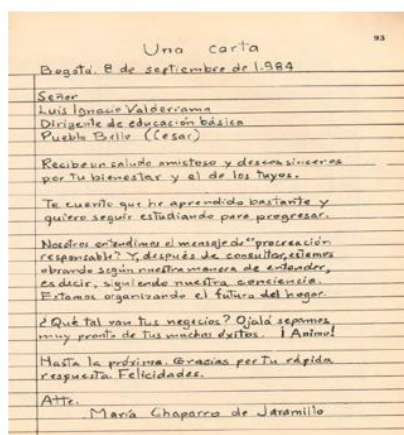 93
Una carta
Bogotá. 8 de septiembre de 1.984
Señor
Luis Ignacio Valderrama
Dirigente de educación básica
Pueblo Bello (Cesar)
Recibe un saludo amistoso y deseos sinceros
por tu bienestar y el de los tuyos.
Te cuento que he aprendido bastante y
quiero seguir estudiando para progresar.
Nosotros entendimos el mensaje de "procreación
responsable". Y, después de consultar, estamos
obrando según nuestra manera de entender,
es decir, siguiendo nuestra conciencia.
Estamos organizando el futuro del hogar.
¿Qué tal van tus negocios? Ojalá sepamos
muy pronto de tus muchos éxitos. ¡Animo!
Hasta la próxima. Gracias por tu rápida
respuesta. Felicidades.
Atte.
María Chaparro de Jaramillo